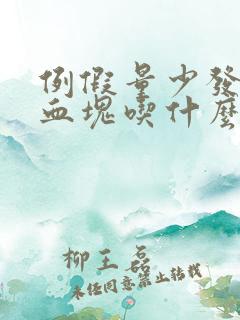 例假量少发
血块喫什麽
柳王磊
未经同意禁止转载